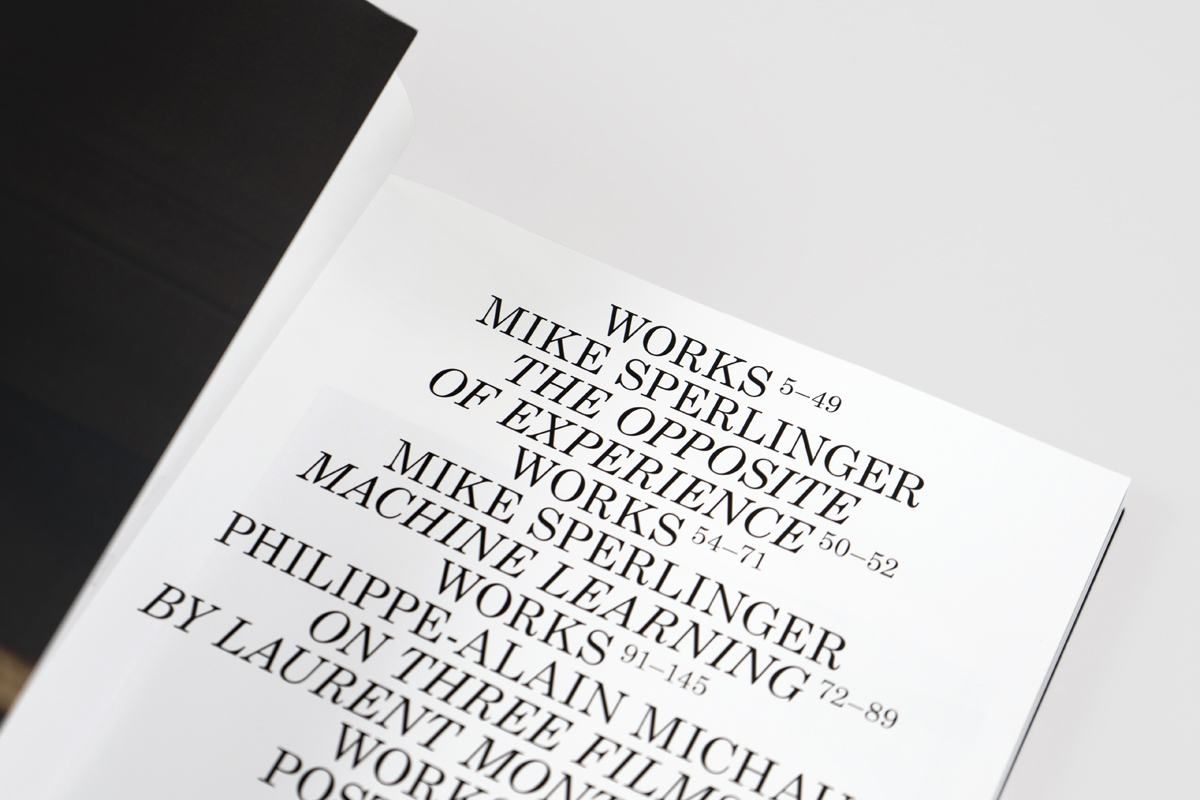 WORKS 5–49
MIKE SPERLINGER
THE OPPOSITE
OF EXPERIENCE 50–52
WORKS 54–71
MIKE SPERLINGER
MACHINE LEARNING 72–89
WORKS 91–145
PHILIPPE-ALAIN
ON THREE FILMS
BY LAURENT
WORKS